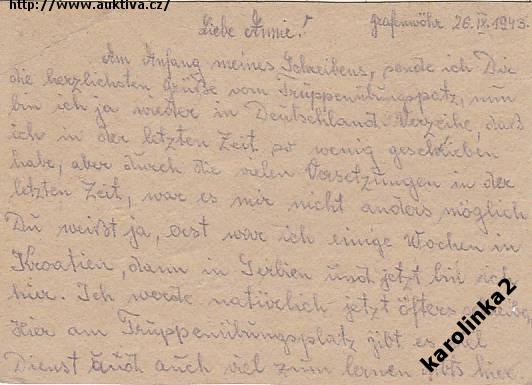 http://www.auktiva.cz/
Grafenwöhr 26.IX.1943.
Liebe Annie!
Am Anfang meines Schreibens, sende ich Dir
die herzlichsten Grüße vom Truppenübungsplatz, nun
bin ich ja wieder in Deutschland. Verzeihe, daß
ich in der letzten Zeit so wenig geschrieben
habe, aber durch die vielen Versetzungen in der
letzten Zeit, war es mir nicht anders möglich
Du weißt ja, erst war ich einige Wochen in
Kroatien, dann in Serbien und jetzt bin ich
hier. Ich werde natürlich jetzt öfters
Hier am Truppenübungsplatz gibt es viel
Dienst auch viel zum lernen gibts hier
karolinka2